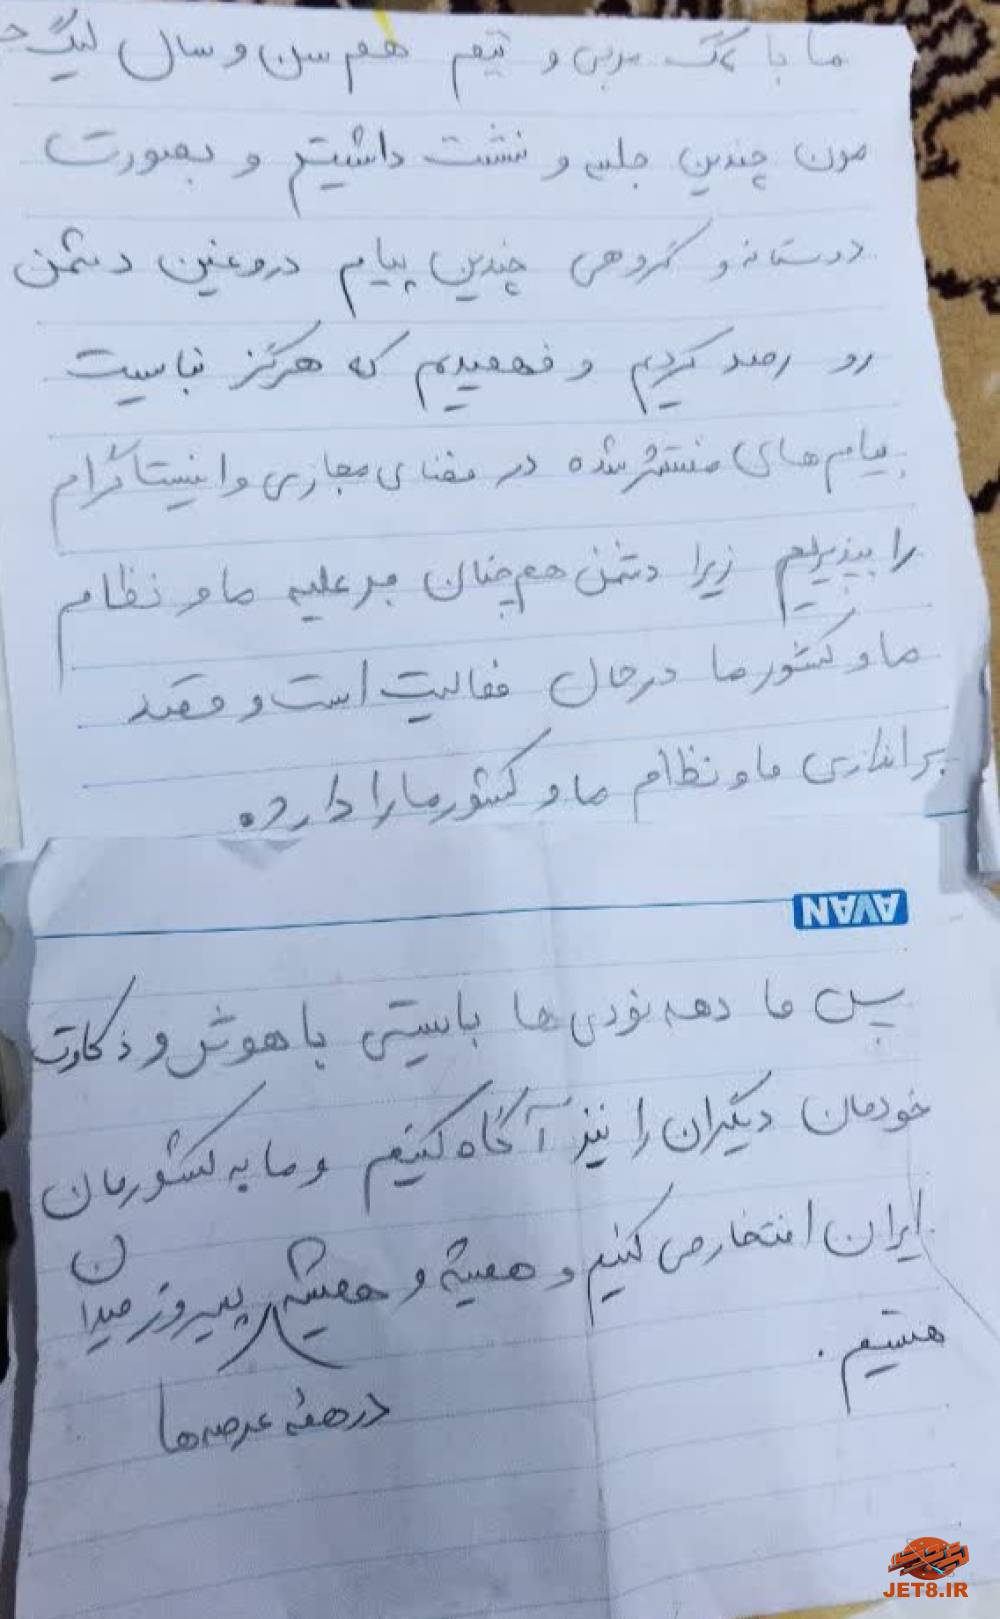 ما با کمک مربی و تیم هم سن و سال لیگ
مون چندین جلسه و نشست داشتیم و بصورت
دوستانه و گروهی چندین پیام دروغین دشمن
رو رصد کردیم و فهمیدیم که هرگز نباسیت
پیام های منتشر شده در فضای مجازی و اینیستاگرام
را بپذیریم زیرا دشمن هم چنان بر علیه ما و نظام
ما و کشور ما در حال فعالیت است و قصد
بر اندازی ما و نظام ما و کشور ما را دارد.
AVAN
پس ما دهه نودی ها بایستی با هوش و ذکاوت
خودمان دیگران را نیز آگاه کنیم و ما به کشورمان
ایران افتخار می کنیم و همیشه و همیشه پیروز میدان
در همهٔ عرصه ها
هستیم.
JET8.IR